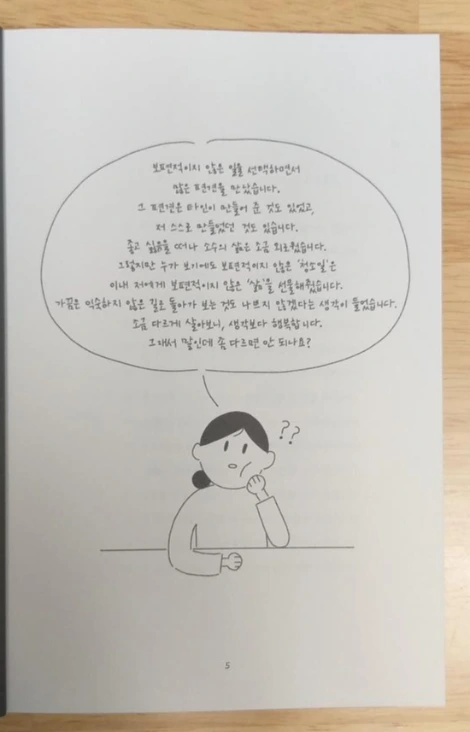 보편적이지 않은 일을 선택하면서
많은 편견을 만났습니다.
그 편견은 타인이 만들어 준 것도 있었고,
저 스스로 만들었던 것도 있습니다.
좋고 싫음을 떠나 소수의 삶은 조금 외로웠습니다.
그렇지만 누가 보기에도 보편적이지 않은 '청소일'은
이내 저에게 보편적이지 않은 '삶'을 선물해줬습니다.
가끔은 익숙하지 않은 길로 돌아가 보는 것도 나쁘지 않겠다는 생각이 들었습니다.
조금 다르게 살아보니, 생각보다 행복합니다.
그래서 말인데 좀 다르면 안 되나요?
??
5